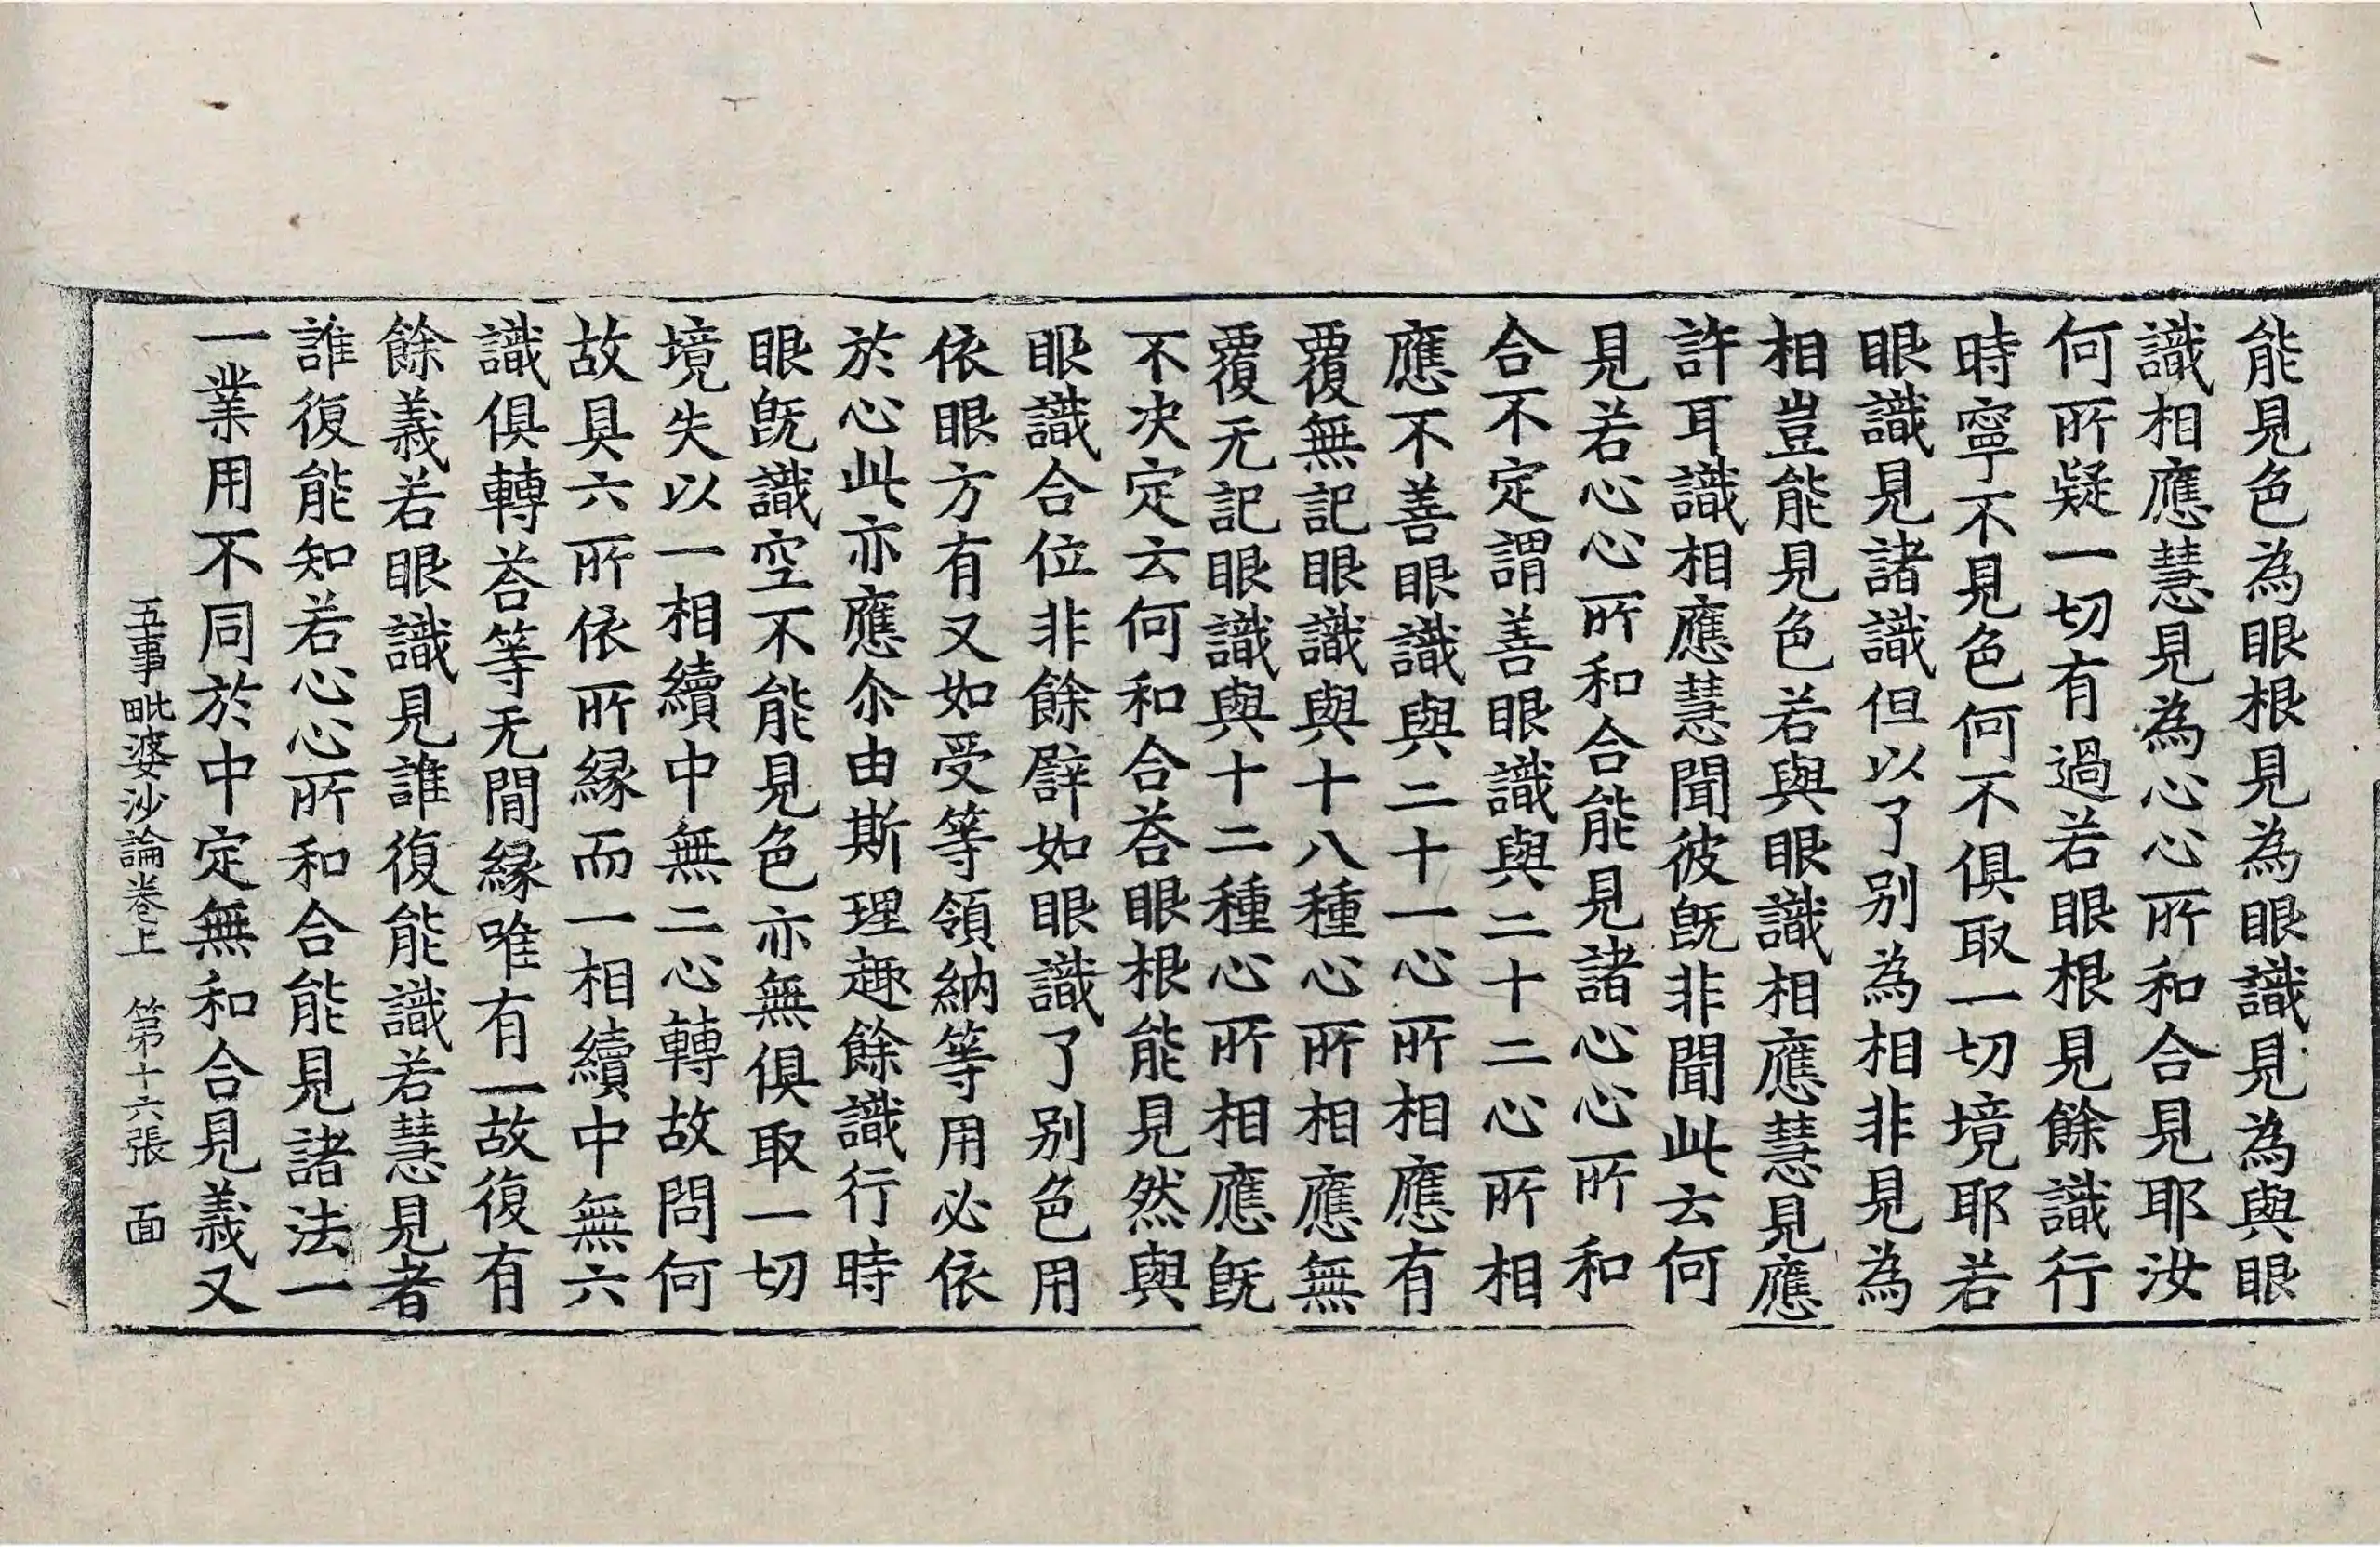 能見色為眼根見為眼識見為與眼
識相應慧見為心心所和合見耶汝
何所疑一切有過若眼根見餘識行
時寧不見色何不俱取一切境耶若
眼識見諸識但以了别為相非見為
相豈能見色若與眼識相應慧見應
許耳識相應慧聞彼旣非聞此云何
見若心心所和合能見諸心心所和
合不定謂善眼識與二十二心所相
應不善眼識與二十一心所相應有
覆無記眼識與十八種心所相應無
覆无記眼識與十二種心所相應旣
不决定云何和合荅眼根能見然與
眼識合位非餘辟如眼識了别色用
依眼方有又如受等領納等用必依
於心此亦應尒由斯理趣餘識行時
眼旣識空不能見色亦無俱取一切
境失以一相續中無二心轉故問何
故具六所依所縁而一相續中無六
識俱轉荅等无間縁唯有一故復有
餘義若眼識見誰復能識若慧見者
誰復能知若心心所和合能見諸法一
一業用不同於中定無和合見義又
五事毗婆沙論卷上　第十六張　面